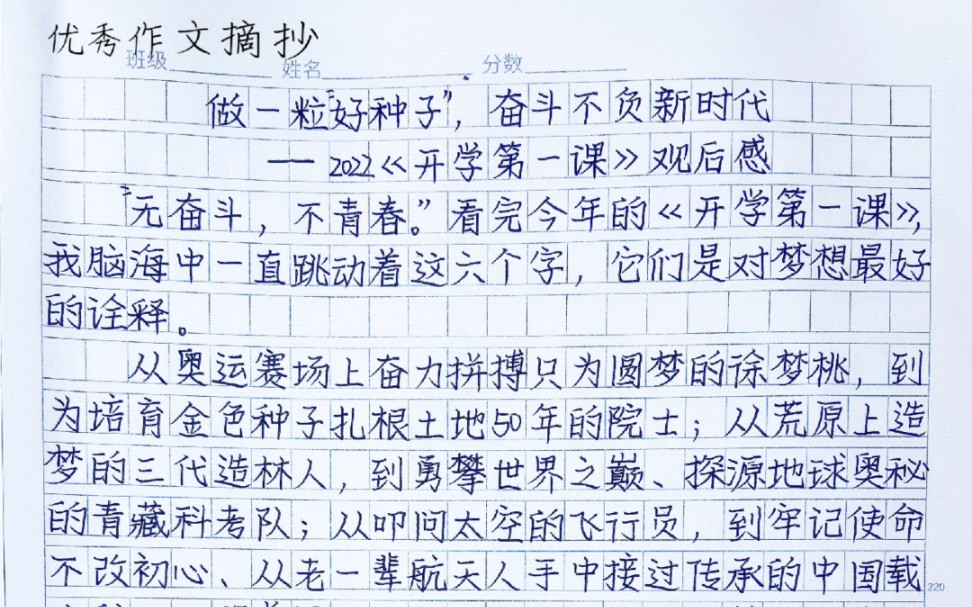 优秀作文摘抄
班级 姓名 分数
做一粒“好种子”，奋斗不负新时代
——2022《开学第一课》观后感
“无奋斗，不青春。”看完今年的《开学第一课》，
我脑海中一直跳动着这六个字，它们是对梦想最好
的诠释。
从奥运赛场上奋力拼搏只为圆梦的徐梦桃，到
为培育金色种子扎根土地50年的院士；从荒原上造
梦的三代造林人，到勇攀世界之巅、探源地球奥秘
的青藏科考队；从叩问太空的飞行员，到牢记使命
不改初心、从老一辈航天人手中接过传承的中国载
220